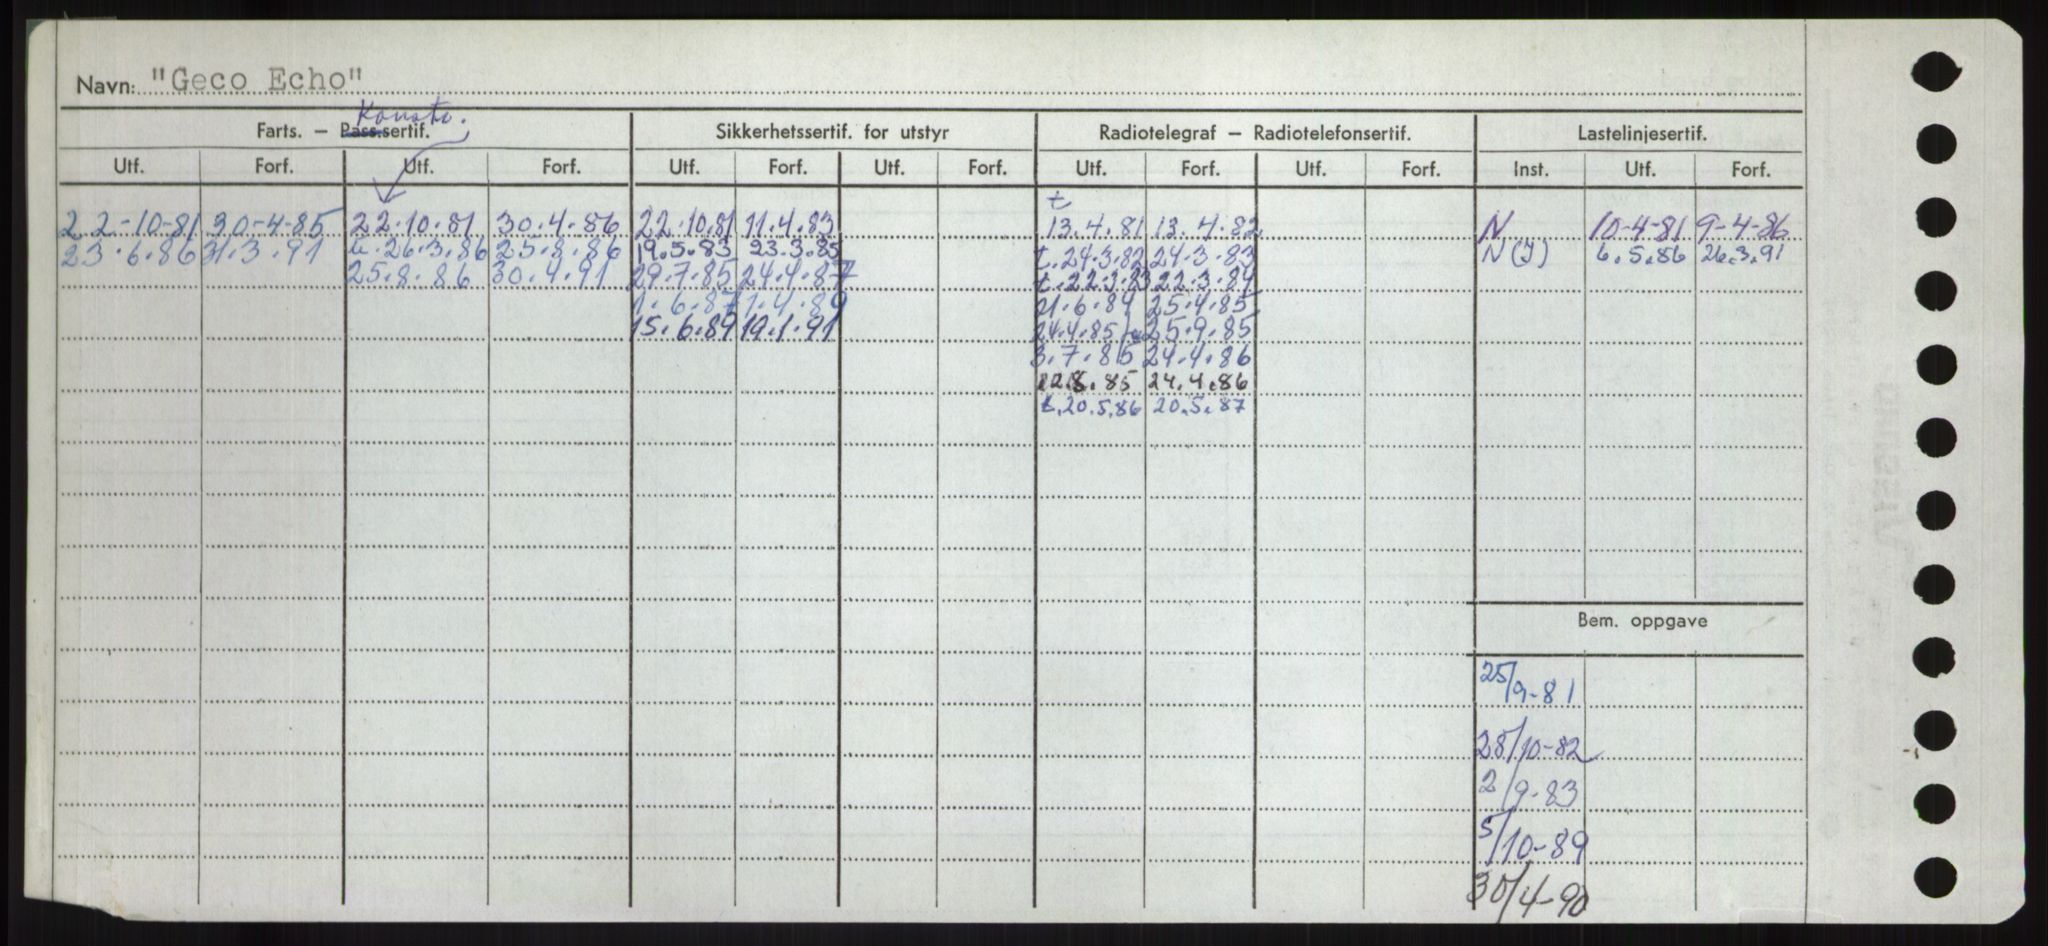 Navn: "Geco Echo"
Konstr.
Farts. – Pass.sertif. Sikkerhetssertif. for utstyr Radiotelegraf – Radiotelefonsertif. Lastelinjesertif.
Utf. Forf. Utf. Forf. Utf. Forf. Utf. Forf. Utf. Forf. Utf. Forf. Inst. Utf. Forf.
t
22-10-81 30-4-85 22.10.81 30.4.86 22.10.81 11.4.83 13.4.81 13.4.82 N 10-4-81 9-4-86
23.6.86 31.3.91 u.26.3.86 25.8.86 19.5.83 23.3.85 t.24.3.82 24.3.83 N(J) 6.5.86 26.3.91
25.8.86 30.4.91 29.7.85 24.4.87 t.22.3.83 22.3.84
1.6.87 1.4.89 21.6.84 25.4.85
15.6.89 19.1.91 24.4.85 25.9.85
3.7.85 24.4.86
12.8.85 24.4.86
t.20.5.86 20.5.87
Bem. oppgave
25/9-81
28/10-82
2/9-83
5/10-89
30/4-90